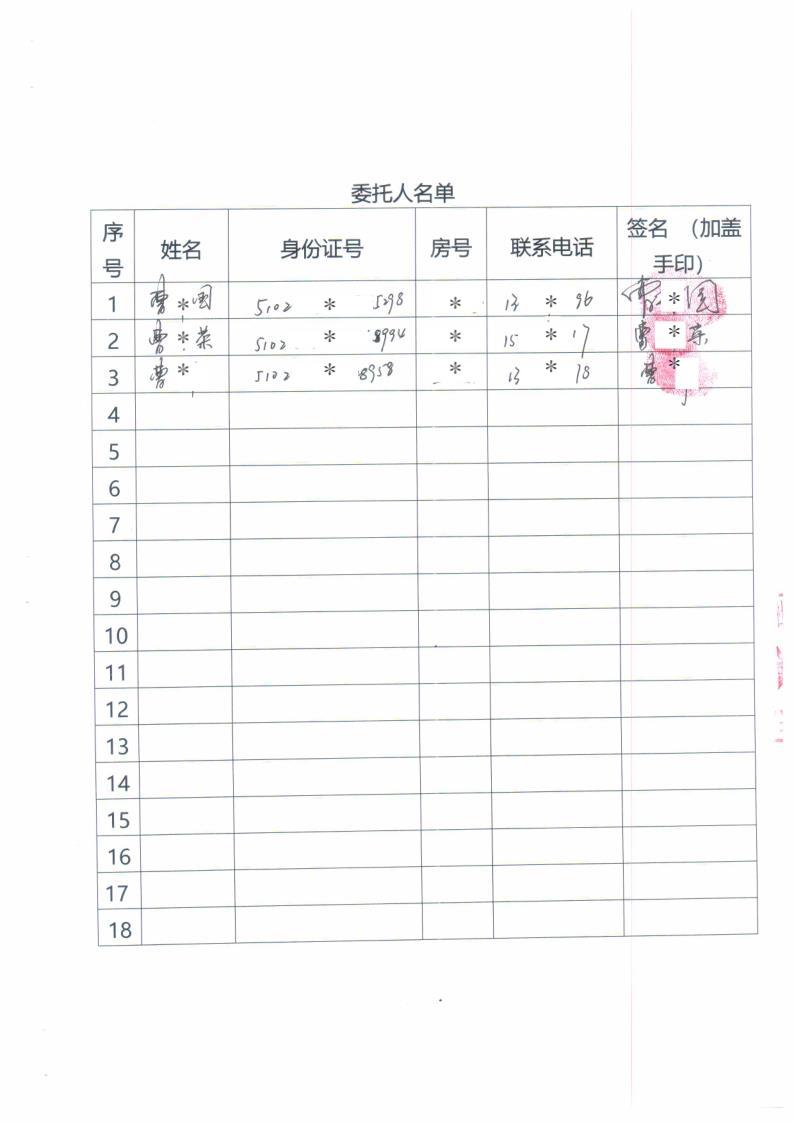 委托人名单
序号 姓名 身份证号 房号 联系电话 签名 （加盖手印）
1 曹*国 5102 * 5298 * 13 * 96 曹*国
2 曹*荣 5102 * 8994 * 15 * 17 曹*荣
3 曹* 5102 * 8958 * 13 * 78 曹*
4
5
6
7
8
9
10
11
12
13
14
15
16
17
18